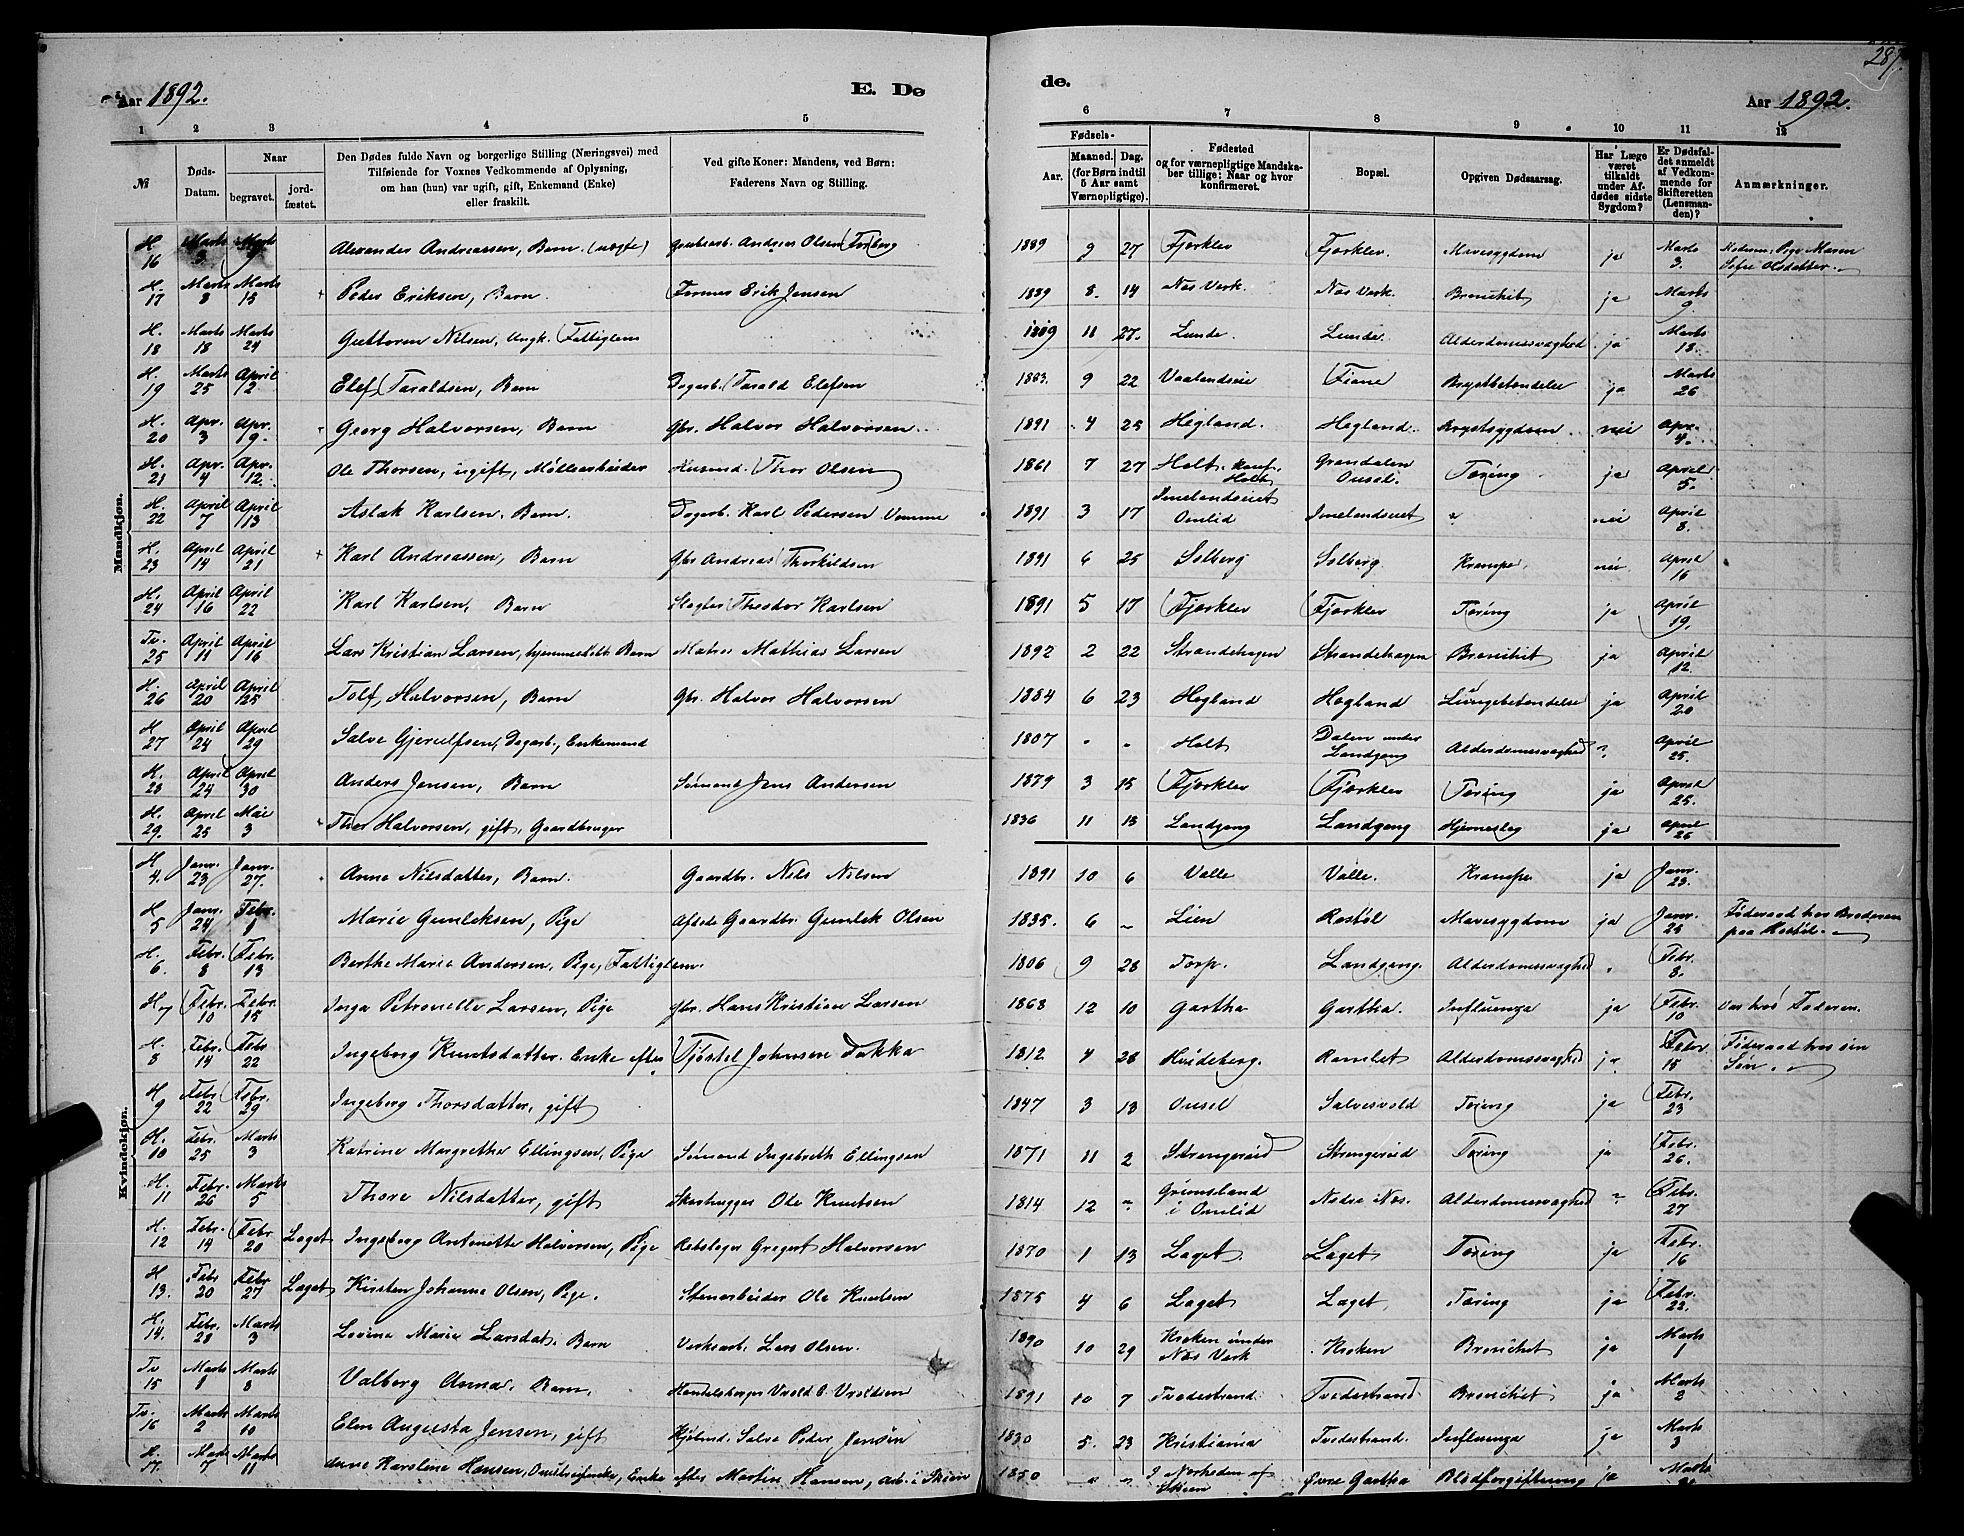 287.
Aar 1892. E. Dø
de. Aar 1892.
1 2 3 4 5 6 7 8 9 10 11 12
№ Døds-Datum. Naar begravet. jordfæstet. Den Dødes fulde Navn og borgerlige Stilling (Næringsvei) med Tilføiende for Voxnes Vedkommende af Oplysning, om han (hun) var ugift, gift, Enkemand (Enke) eller fraskilt. Ved gifte Koner: Mandens, ved Børn: Faderens Navn og Stilling. Fødsels- Aar. Maaned. Dag. (for Børn indtil 5 Aar samt Værnepligtige). Fødested og for værnepligtige Mandskaber tillige: Naar og hvor konfirmeret. Bopæl. Opgiven Dødsaarsag. Har Læge været tilkaldt under Afdødes sidste Sygdom? Er Dødsfaldet anmeldt af Vedkommende for Skifteretten (Lensmanden)? Anmærkninger.
Mandkjøn.
H. 16 Marts 3 Marts 9 Alexander Andreassen, Barn. (uægte) Andreas Olsen Torberg 1889 9 27 Fjærklev Fjærklev Mavesygdom ja Marts 3. Moderen: Pige Maren Sofie Olsdatter.
H. 17 Marts 8 Marts 15 Peder Eriksen, Barn. Former Erik Jensen 1889 8. 14 Næs Værk. Næs Værk. Bronchit ja Marts 9.
H. 18 Marts 18 Marts 24 Guttorm Nilsen, Ungk. Fattiglem 1809 11 27. Lunde. Lunde. Alderdomssvaghed ja Marts 18.
H. 19 Marts 25 April 2 Elef Taraldsen, Barn Dagarb. Tarald Elefsen 1883. 9 22 Vaalandseie Fiane Brystbetændelse ja Marts 26
H. 20 Apr. 3 Apr. 9. Georg Halvorsen, Barn Gbr. Halvor Halvorsen 1891 4 25 Hegland. Hegland. Brystsygdom nei Apr. 4.
H. 21 Apr. 4 Apr. 12. Ole Thorsen, ugift, Møllearbeider Husmd. Thor Olsen 1861 7 27 Holt, konf. Holt Grøndalen Ousel. Tæring ja April 5.
H. 22 April 7 April 13 Aslak Karlsen, Barn. Dagarb. Karl Pedersen Vemme 1891 3 17 Imelandseiet Omlid Imelandseiet " nei April 8.
H. 23 April 14 April 21 Karl Andreassen, Barn Gbr Andreas Thorkildsen 1891 6 25 Solberg Solberg Krampe nei April 16
H. 24 April 16 April 22 Karl Karlsen, Barn Slagter Theodor Karlsen 1891 5 17 Fjærklev Fjærklev Tæring ja April 19.
Tv. 25 April 11 April 16 Lars Kristian Larsen, hjemmedøbt Barn Matros Mathias Larsen 1892 2 22 Strandehagen Strandehagen Bronchit ja April 12.
H. 26 April 20 April 25 Tolf Halvorsen, Barn Gbr. Halvor Halvorsen 1884 6 23 Hegland Hegland Lungebetændelse ja April 20
H. 27 April 24 April 29 Salve Gjerulfsen, Dagarb., Enkemand 1807 " " Holt Dalen under Landgang Alderdomssvaghed ". April 25.
H. 28 April 24 April 30 Anders Jensen, Barn Sømand Jens Andersen 1879 3 15 Fjærklev Fjærklev Tæring ja April 25.
H. 29. April 25 Mai 3 Thor Halvorsen, gift, Gaardbruger 1836 11 13 Landgang Landgang Hjerneslag ja April 26
Kvindekjøn.
H 4. Janr. 23 Janr. 27. Anne Nilsdatter, Barn. Gaardbr. Nils Nilsen 1891 10 6 Valle Valle. Krampe ja Janr. 23.
H 5 Janr. 24 Febr. 1 Marie Gunleksen, Pige Afdøde Gaardbr. Gunlek Olsen 1835. 6 " Lien Røstøl Mavesygdom ja Janr. 25 Føderaad hos Broderen paa Røstøl.
H. 6. Febr. 8 Febr. 13 Berthe Marie Andersen, Pige, Fattiglem. 1806 9 28 Torp. Landgang. Alderdomssvaghed " Febr. 8.
H. 7 Febr. 10 Febr. 15 Inga Petronelle Larsen, Pige Gbr. Hans Kristian Larsen 1868 12 10 Gartha Gartha. Influenza ja Febr. 10 Var hos Faderen.
H. 8 Febr. 14 Febr 22 Ingeborg Knutsdatter. Enke efter Tjøstel Johnsen Dakka 1812 4 28 Hvideberg. Ramlet Alderdomssvaghed ja. Febr 15 Føderaad hos sin Søn.
H. 9 Febr 22 Febr. 29 Ingeborg Thorsdatter, gift 1847 3 13 Ousel Salvesvold Tæring ja Febr. 23
H. 10 Febr. 25 Marts 3 Katrine Margrethe Ellingsen, Pige Sømand Ingebreth Ellingsen 1871 11 2 Strengereid Strengereid Tæring ja Febr. 26.
H. 11 Febr. 26 Marts 5 Thore Nilsdatter, gift Skovhugger Ole Knutsen 1814 12 " Grimsland i Omlid Nedre Næs. Alderdomssvaghed " Febr. 27
H. 12 Febr. 14 Febr 20 Laget Ingeborg Antonette Halvorsen, Pige Rebslager Gregert Halvorsen 1870 1 13 Laget. Laget Tæring ja Febr. 16
H 13. Febr 20 Febr 27 Laget Kirsten Johanne Olsen, Pige. Stenarbeider Ole Knutsen 1875 4 6 Laget Laget Tæring ja Febr. 22.
H. 14. Febr. 28 Marts 3 Lovine Marie Larsdat. Barn Værksarb. Lars Olsen. 1890 10 29 Kroken under Næs Værk Kroken Bronchit ja Marts 1
Tv 15 Marts 1 Marts 8 Valborg Anna, Barn. 1891 10 7 Tvedestrand. Tvedestrand Bronchit ja Marts 2
Tv. 16 Marts 2 Marts 10 Elen Augusta Jensen, gift Salve Peder Jensen 1830 5. 23 Kristiania Tvedestrand. Influenza ja Marts 3
H. 17. Marts 7 Marts 11 Anne Karoline Hansen, Enke efter Martin Hansen, Arb. i Skien 1850 " " I Nærheden af Skien Øvre Gartha Blodforgiftning ja Marts